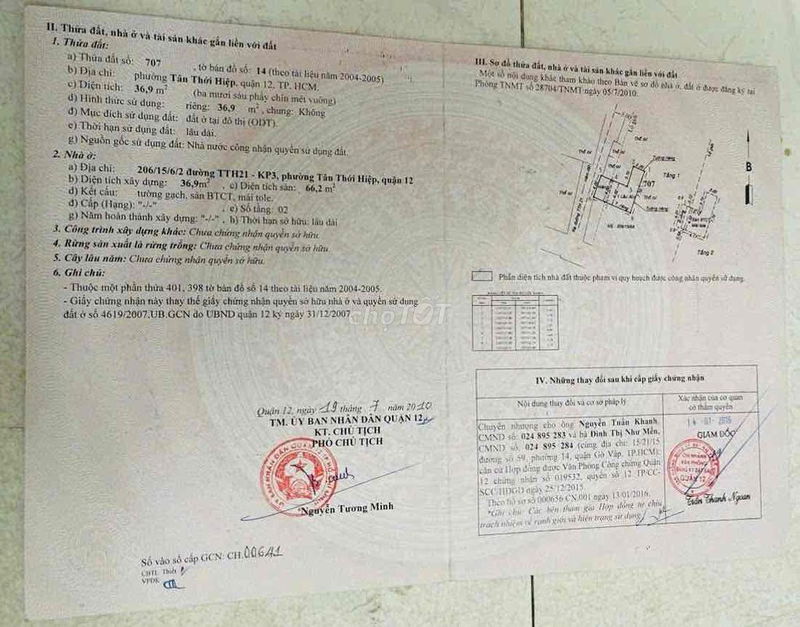 II. Thửa đất, nhà ở và tài sản khác gắn liền với đất
1. Thửa đất:
a) Thửa đất số: 707 , tờ bản đồ số: 14 (theo tài liệu năm 2004-2005)
b) Địa chỉ: phường Tân Thới Hiệp, quận 12, TP. HCM.
c) Diện tích: 36,9 m², (ba mươi sáu phẩy chín mét vuông)
d) Hình thức sử dụng: riêng: 36,9 m², chung: Không
đ) Mục đích sử dụng đất: đất ở tại đô thị (ODT).
e) Thời hạn sử dụng đất: lâu dài.
g) Nguồn gốc sử dụng đất: Nhà nước công nhận quyền sử dụng đất.
2. Nhà ở:
a) Địa chỉ: 206/15/6/2 đường TTH21 - KP3, phường Tân Thới Hiệp, quận 12
b) Diện tích xây dựng: 36,9m², c) Diện tích sàn: 66,2 m²
d) Kết cấu: tường gạch, sàn BTCT, mái tole.
đ) Cấp (Hạng): "-/-" , e) Số tầng: 02
g) Năm hoàn thành xây dựng: "-/-" , h) Thời hạn sở hữu: lâu dài
3. Công trình xây dựng khác: Chưa chứng nhận quyền sở hữu.
4. Rừng sản xuất là rừng trồng: Chưa chứng nhận quyền sở hữu.
5. Cây lâu năm: Chưa chứng nhận quyền sở hữu.
6. Ghi chú:
- Thuộc một phần thửa 401, 398 tờ bản đồ số 14 theo tài liệu năm 2004-2005.
- Giấy chứng nhận này thay thế giấy chứng nhận quyền sở hữu nhà ở và quyền sử dụng
đất ở số 4619/2007.UB.GCN do UBND quận 12 ký ngày 31/12/2007.
Quận 12, ngày 19 tháng 7 năm 2010
TM. ỦY BAN NHÂN DÂN QUẬN 12
KT. CHỦ TỊCH
PHÓ CHỦ TỊCH
Nguyễn Tương Minh
Số vào sổ cấp GCN: CH.00641
VPĐK
III. Sơ đồ thửa đất, nhà ở và tài sản khác gắn liền với đất
Một số nội dung khác tham khảo theo Bản vẽ sơ đồ nhà ở, đất ở được đăng ký tại
Phòng TNMT số 28704/TNMT ngày 05/7/2010.
B
Thổ cư
Tầng 1
707
Tầng 2
Phần diện tích nhà đất thuộc phạm vi quy hoạch được công nhận quyền sử dụng.
chợTỐT
IV. Những thay đổi sau khi cấp giấy chứng nhận
Nội dung thay đổi và cơ sở pháp lý
Xác nhận của cơ quan
có thẩm quyền
Chuyển nhượng cho ông Nguyễn Tuấn Khanh,
CMND số: 024 895 283 và bà Đinh Thị Như Mến,
CMND số: 024 895 284 (cùng địa chỉ: 15/21/15
đường số 59, phường 14, quận Gò Vấp, TP.HCM);
căn cứ Hợp đồng được Văn Phòng Công chứng Quận
12 chứng nhận số 019532, quyển số 12 TP/CC-
SCC/HĐGD ngày 25/12/2015.
Theo hồ sơ số 000656.CN.001 ngày 13/01/2016.
*Ghi chú: Các bên tham gia Hợp đồng tự chịu
trách nhiệm về ranh giới và hiện trạng sử dụng.
GIÁM ĐỐC
CHI NHÁNH
QUẬN 12
Trần Thanh Ngoan